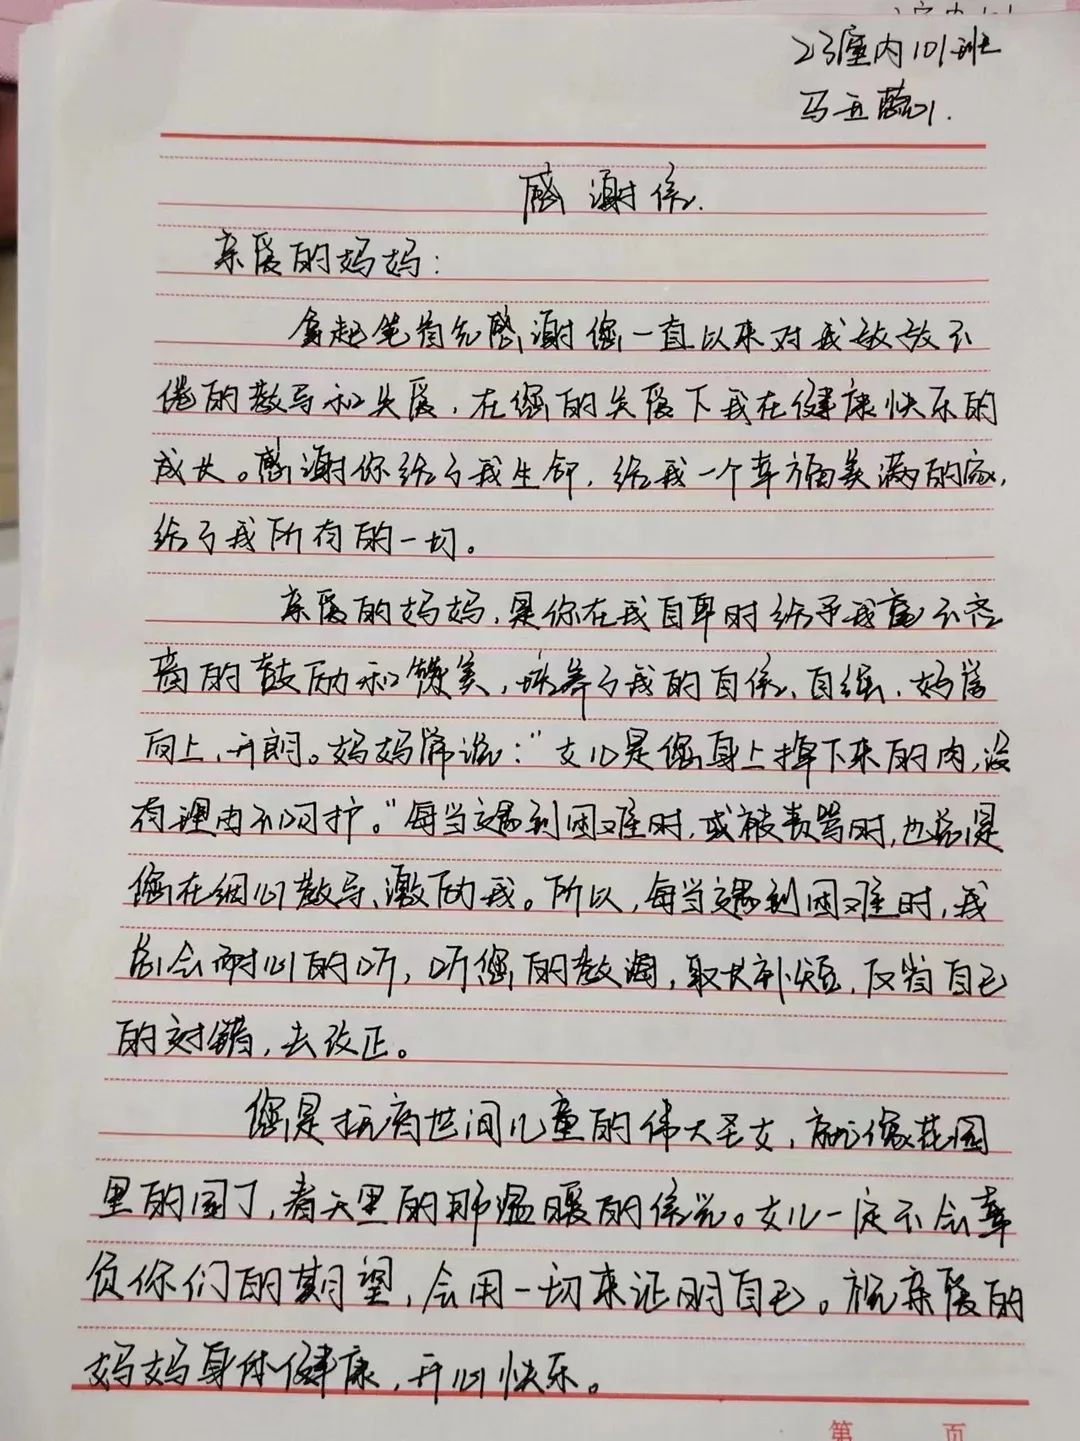 23室内101班
马玉
感谢信.
亲爱的妈妈：
拿起笔首先感谢您一直以来对我孜孜不
倦的教导和关爱，在您的关爱下我在健康快乐的
成长。感谢你给了我生命，给我一个幸福美满的家，
给了我所有的一切。
亲爱的妈妈，是你在我自卑时给予我毫不吝
啬的鼓励和赞美，培养了我的自信、自强、好学
向上、开朗。妈妈常说：“女儿是您身上掉下来的肉，没
有理由不呵护。”每当遇到困难时，或被责骂时，也总是
您在细心教导、激励我。所以，每当遇到困难时，我
总会耐心的听，听您的教诲，取长补短，反省自己
的对错，去改正。
您是抚育世间儿童的伟大圣女，就像花园
里的园丁，春天里的那温暖的阳光。女儿一定不会辜
负你们的期望，会用一切来证明自己。祝亲爱的
妈妈身体健康，开心快乐。
第 页